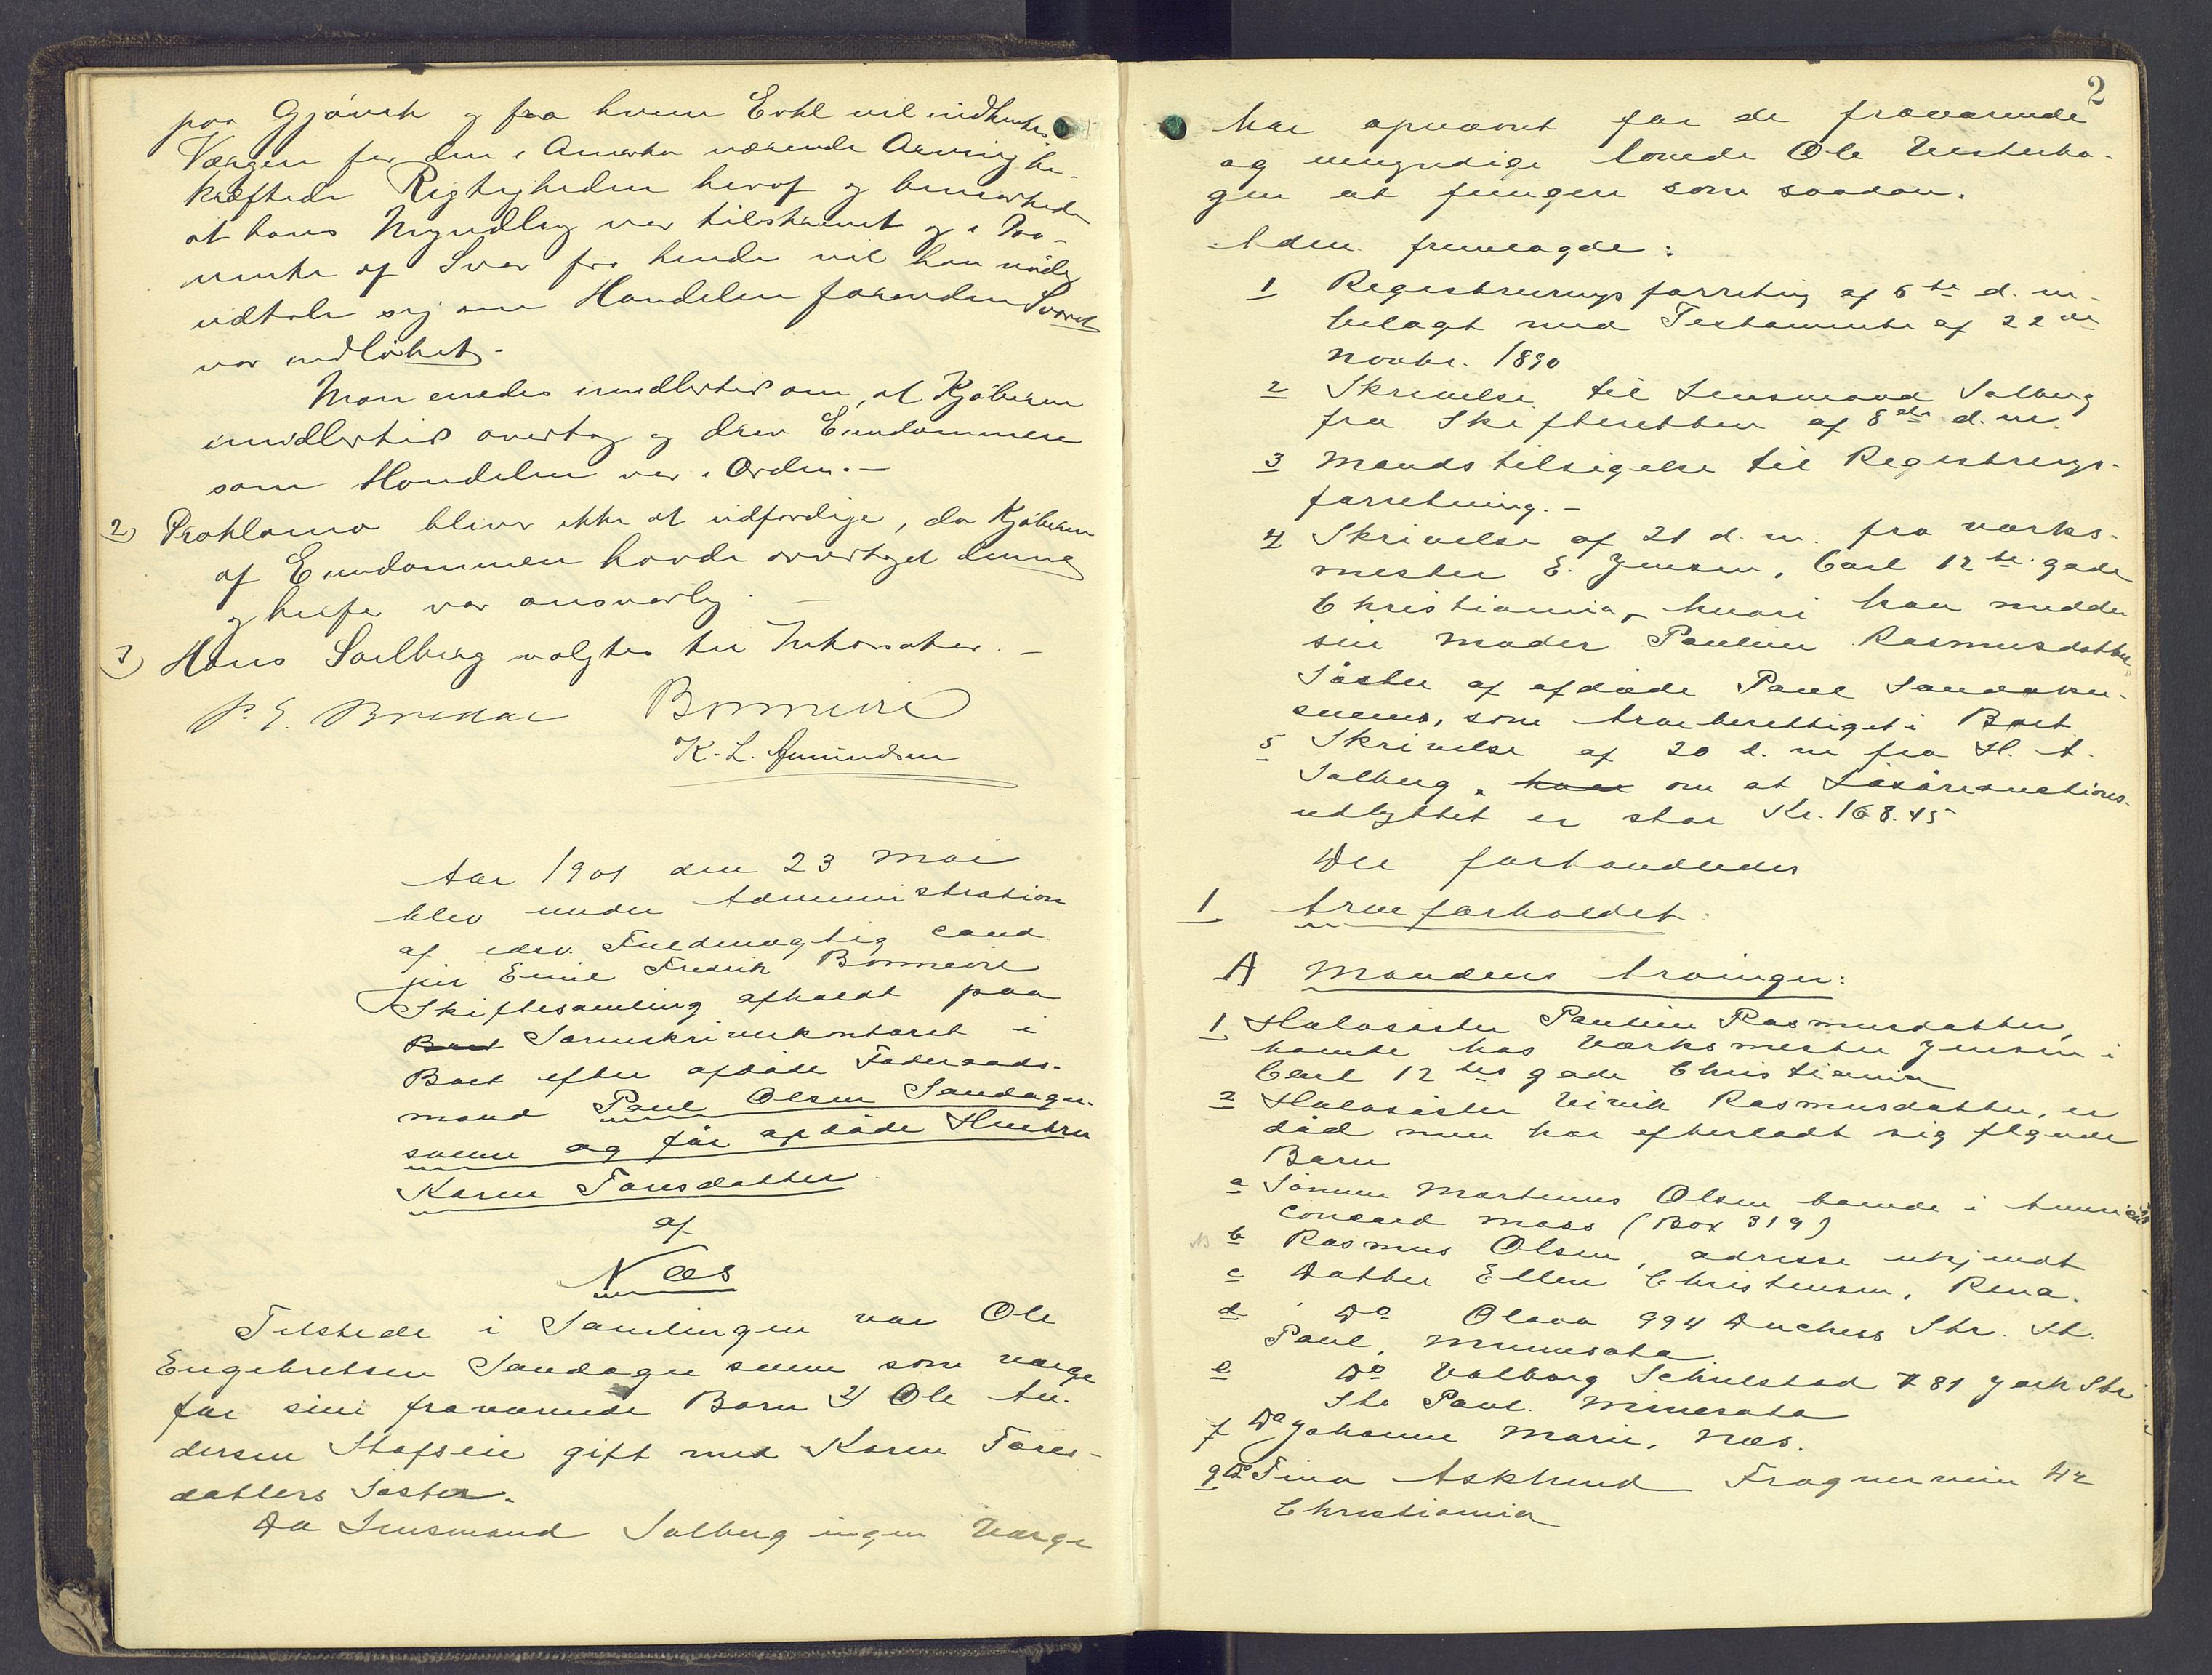 paa Gjøvik og fra hvem Exkl vil indhentes
Værgen for den i Amerka værende Arving be-
kræftede Rigtigheden heraf og bemærkede
at hans Myndling var tilskrevet og i Paa-
vente af Svar fra hende vil han nødig
udtale sig om Handelen forinden Svaret
var indløbet.
Man enedes imidlertid om, at Kjøberen
imidlertid overtog og drev Eiendommen
som Handelen var i Orden. -
2) Proklama bliver ikke at udfærdige, da Kjøberen
af Eiendommen havde overtaget denne
og herfor var ansvarlig. -
3) Hans Saelberg valgtes til Inkassator. -
Bonnevie
K. L. Amundsen
Aar 1901 den 23 Mai
blev under Administration
af edsv. Fuldmægtig cand.
jur Emil Fredrik Bonnevie
Skiftesamling afholdt paa
Boet Sorenskriverkontoret i
Boet efter afdøde Føderaads-
mand Paul Olsen Sandager-
sveen og før afdøde Hustru
Karen Toresdatter
af
Næs
Tilstede i Samlingen var Ole
Engebretsen Sandager sveen som værge
for sine fraværende Børn 2) Ole An-
dersen Stafseie gift med Karen Tores-
datters Søster.
Da Lensmand Salberg ingen Værge
2
har opnævnt for de fraværende
og umyndige lovede Ole Vesterha-
gen at fungere som saadan.
Adm. fremlagde:
1 Registreringsforretning af 6te d. m.
belagt med Testamente af 22de
Novbr. 1890
2 Skrivelse til Lensmand Salberg
fra Skifteretten af 8de d. m.
3 Mandstilsigelse til Registrerings-
forretning. -
4 Skrivelse af 21 d. m. fra værks-
mester E. Jensen, Carl 12te gade
Christiania, hvori han melder
sin Moder Pauline Rasmusdatter,
Søster af afdøde Paul Sandager-
sveen, som arveberettiget i Boet
5 Skrivelse af 20 d. m fra H. A.
Salberg, hvor om at Løsøreauctions-
udbyttet er stor Kr. 168.45
Der forhandledes
1 Arveforholdet:
A Mandens Arvinger:
1 Halvsøster Pauline Rasmusdatter,
boende hos Værksmester Jensen i
Carl 12tes gade Christiania
2 Halvsøster Rasmusdatter, er
død men har efterladt sig flgende
Børn
a Sønnen Martinus Olsen boende i Amerika
Concord Mass (Box 319)
b Rasmus Olsen, adresse ukjendt
c Datter Ellen Christensen, Rena.
d Do Olava 994 Duchess Str. St.
Paul, Minnesota
e Do Valborg Schulstad 781 York Str
St. Paul. Minesota
f Do Johanne Marie, Næs.
g Do Tina Asklund Frognerveien 42
Christiania